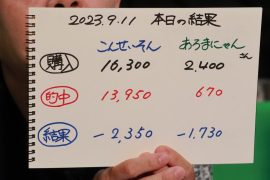 2023.9.11 本日の結果
こんせいそん あろまにゃんさん
購入 16,300 2,400
的中 13,950 670
結果 -2,350 -1,730